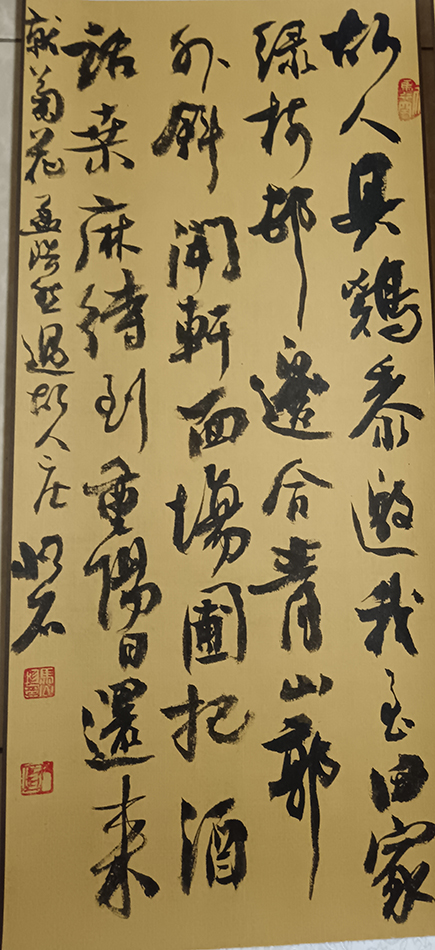 故人具鷄黍邀我至田家
绿树邨邊合青山郭
外斜開軒面場圃把酒
話桑麻待到重陽日還来
就菊花孟浩然過故人庄